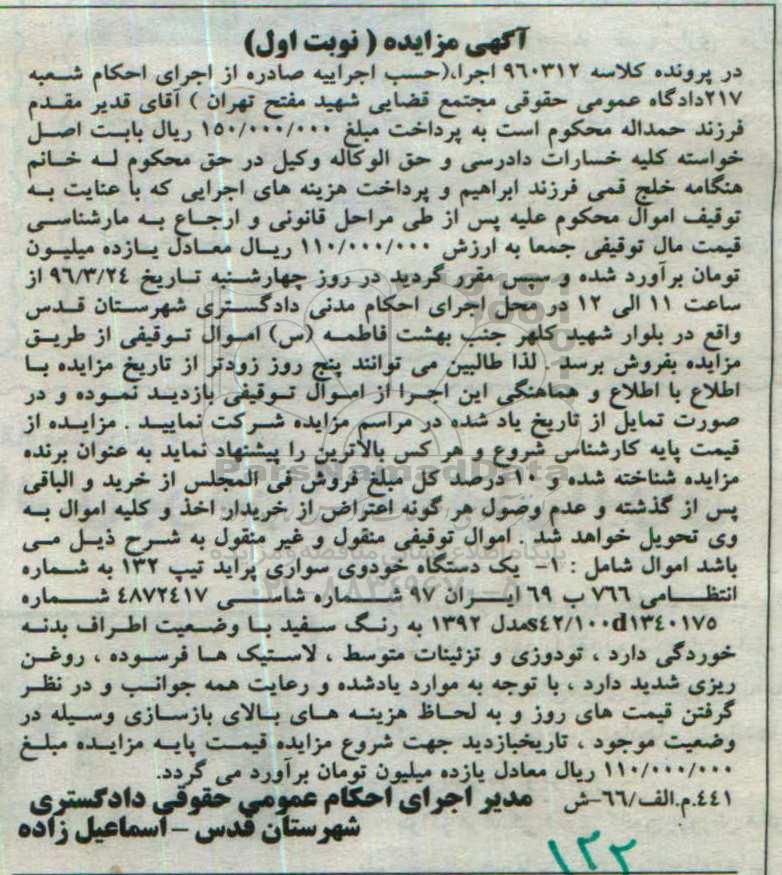 آگهی مزایده ( نوبت اول)
در پرونده کلاسه ۹۶۰۳۱۲ اجرا،(حسب اجراییه صادره از اجرای احکام شعبه
۲۱۷دادگاه عمومی حقوقی مجتمع قضایی شهید مفتح تهران ) آقای قدیر مقدم
فرزند حمداله محکوم است به پرداخت مبلغ ۱۵۰/۰۰۰/۰۰۰ ریال بابت اصل
خواسته کلیه خسارات دادرسی و حق الوکاله وکیل در حق محکوم له خانم
هنگامه خلج قمی فرزند ابراهیم و پرداخت هزینه های اجرایی که با عنایت به
توقیف اموال محکوم علیه پس از طی مراحل قانونی و ارجاع به مارشناسی
قیمت مال توقیفی جمعا به ارزش ۱۱۰/۰۰۰/۰۰۰ ریال معادل یازده میلیون
تومان برآورد شده و سپس مقرر گردید در روز چهارشنبه تاریخ ۹۶/۳/۲۴ از
ساعت ۱۱ الی ۱۲ در محل اجرای احکام مدنی دادگستری شهرستان قدس
واقع در بلوار شهید کلهر جنب بهشت فاطمه (س) اموال توقیفی از طریق
مزایده بفروش برسد . لذا طالبین می توانند پنج روز زودتر از تاریخ مزایده با
اطلاع با اطلاع و هماهنگی این اجرا از اموال توقیفی بازدید نموده و در
صورت تمایل از تاریخ یاد شده در مراسم مزایده شرکت نمایید . مزایده از
قیمت پایه کارشناس شروع و هر کس بالاترین را پیشنهاد نماید به عنوان برنده
مزایده شناخته شده و ۱۰ درصد کل مبلغ فروش فی المجلس از خرید و الباقی
پس از گذشته و عدم وصول هر گونه اعتراض از خریدار اخذ و کلیه اموال به
وی تحویل خواهد شد . اموال توقیفی منقول و غیر منقول به شرح ذیل می
باشد اموال شامل : ۱- یک دستگاه خودوی سواری پراید تیپ ۱۳۲ به شماره
انتظامی ۷۶۶ ب ۶۹ ایران ۹۷ شماره شاسی ۴۸۷۲۴۱۷ شماره
s۴۲/۱۰۰d۱۳۴۰۱۷۵مدل ۱۳۹۲ به رنگ سفید با وضعیت اطراف بدنه
خوردگی دارد ، تودوزی و تزئینات متوسط ، لاستیک ها فرسوده ، روغن
ریزی شدید دارد ، با توجه به موارد یادشده و رعایت همه جوانب و در نظر
گرفتن قیمت های روز و به لحاظ هزینه های بالای بازسازی وسیله در
وضعیت موجود ، تاریخبازدید جهت شروع مزایده قیمت پایه مزایده مبلغ
۱۱۰/۰۰۰/۰۰۰ ریال معادل یازده میلیون تومان برآورد می گردد.
۴۴۱.م.الف/۶۶-ش مدیر اجرای احکام عمومی حقوقی دادگستری
شهرستان قدس – اسماعیل زاده
۱۲۲
ParsNamadData